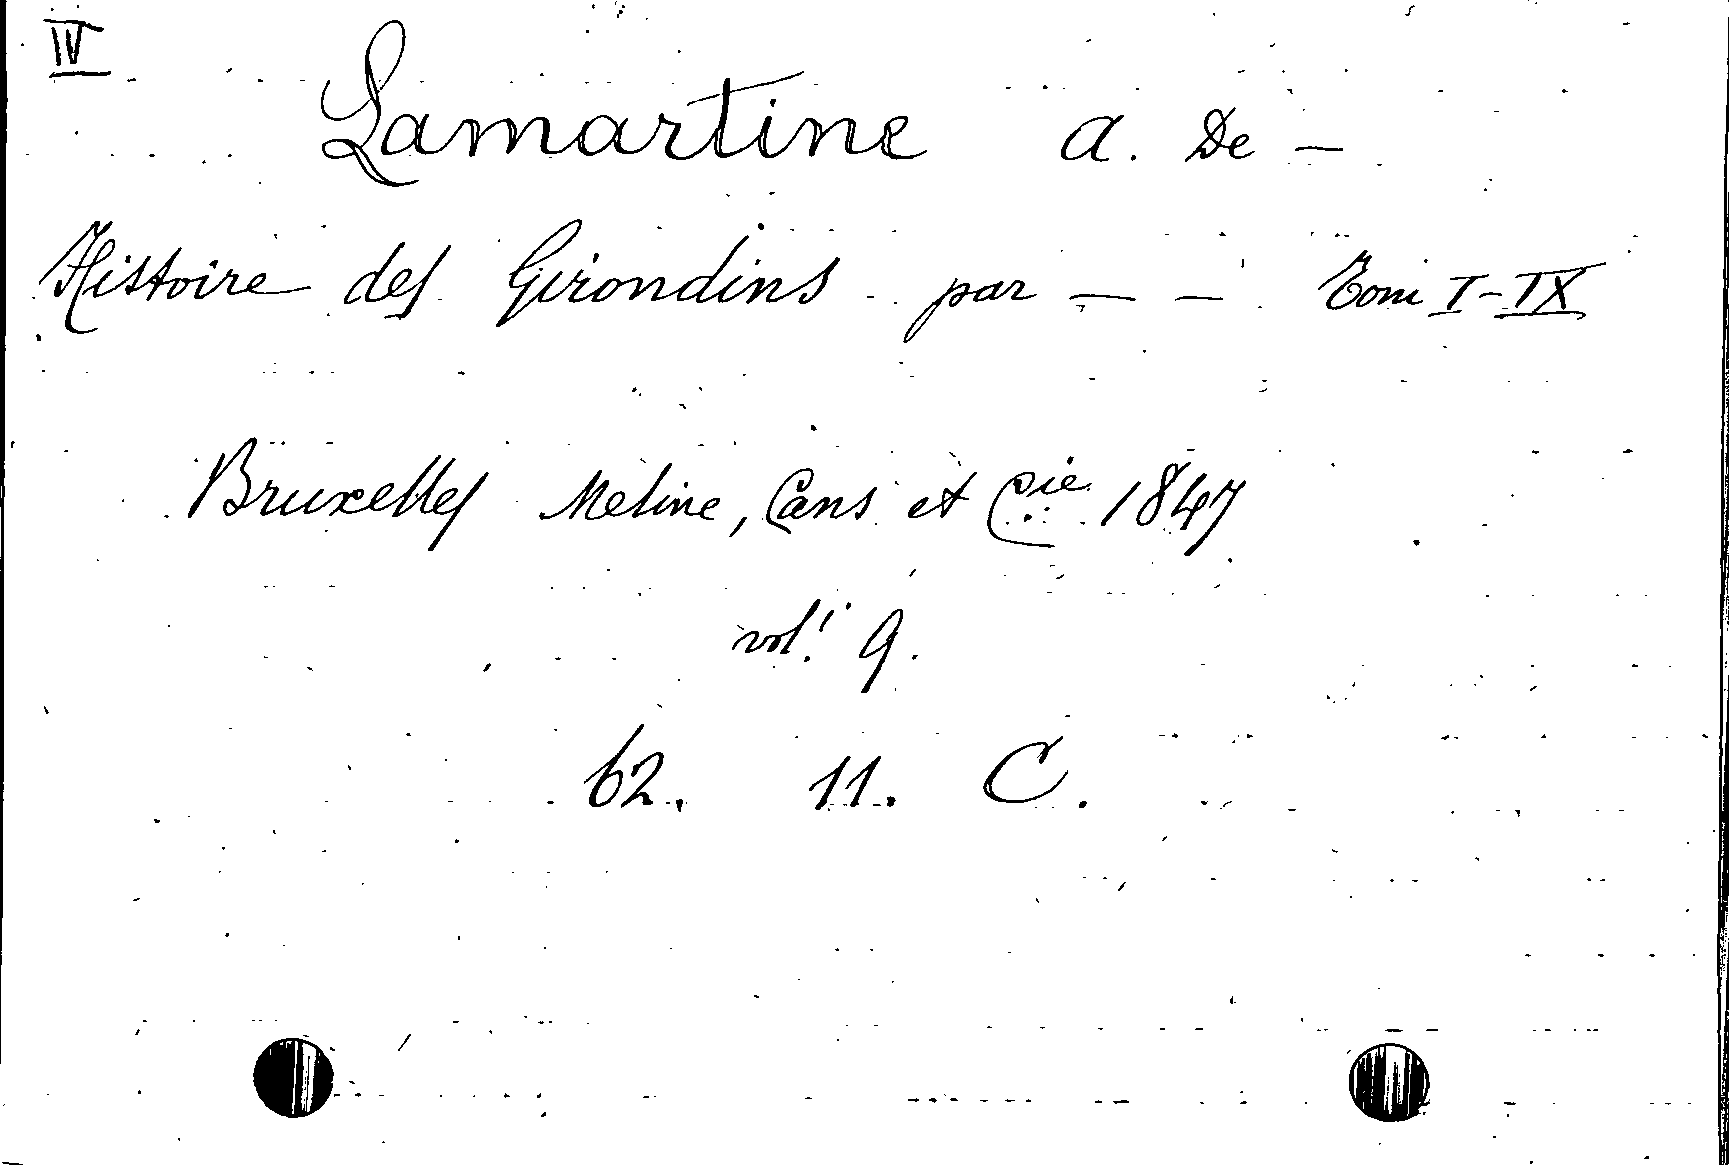 IV
Lamartine A. De —
Histoire des Girondins par — — Tomi I-IX
Bruxelles Meline, Cans et Cie 1847
vol! 9.
62. 11. C.